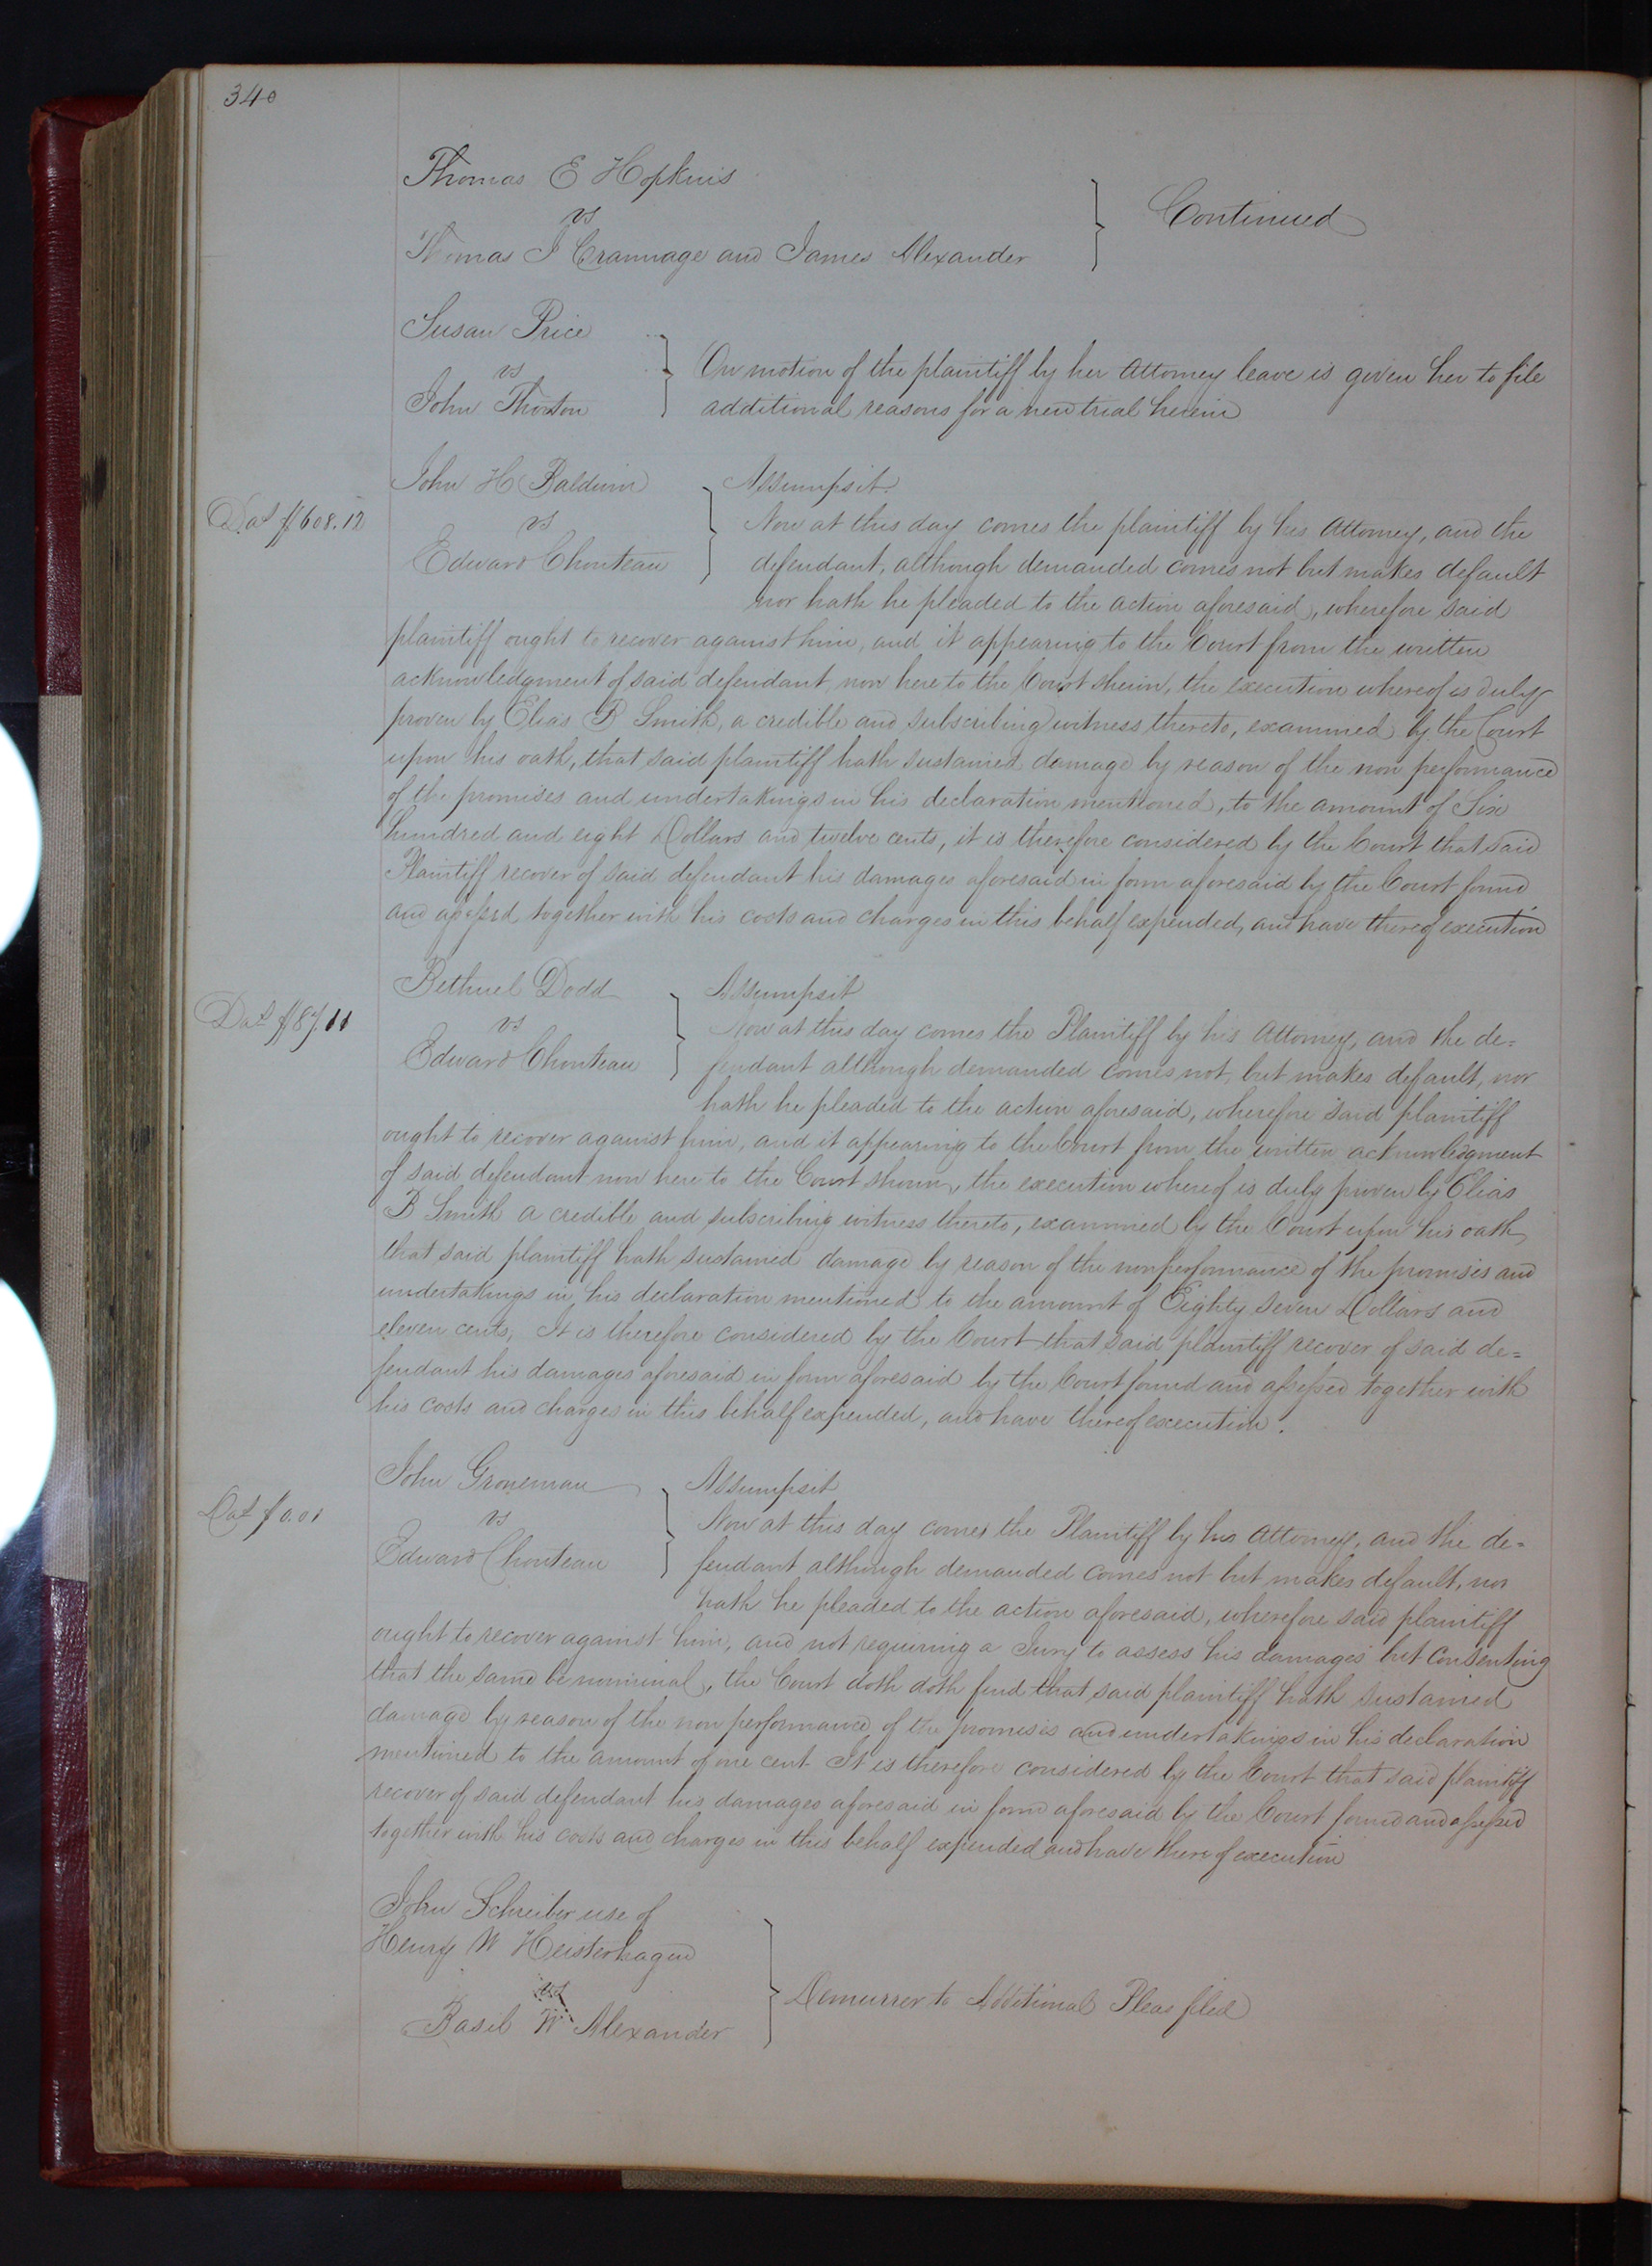 340
Thomas E Hopkins
vs
Thomas J Crammage and James Alexander
Continued
Susan Price
vs
John Thornton
On motion of the plaintiff by her Attorney leave is given her to file
additional reasons for a new trial herein
John H Baldwin
vs
Edward Chouteau
Dat $608.12
Assumpsit.
Now at this day comes the plaintiff by his Attorney, and the
defendant, although demanded comes not but makes default
nor hath he pleaded to the action aforesaid, wherefore said
plaintiff ought to recover against him, and it appearing to the Court from the written
acknowledgment of said defendant now here to the Court shewn, the execution whereof is duly
proven by Elias B Smith, a credible and subscribing witness thereto, examined by the Court
upon his oath, that said plaintiff hath sustained damage by reason of the non performance
of the promises and undertakings in his declaration mentioned, to the amount of Six
hundred and eight Dollars and twelve cents, it is therefore considered by the Court that said
Plaintiff recover of said defendant his damages aforesaid in form aforesaid by the Court found
and assessed together with his costs and charges in this behalf expended, and have thereof execution
Bethuel Dodd
vs
Edward Chouteau
Dat $87.11
Assumpsit
Now at this day comes the Plaintiff by his Attorney, and the de=
fendant although demanded comes not, but makes default, nor
hath he pleaded to the action aforesaid, wherefore said plaintiff
ought to recover against him, and it appearing to the Court from the written acknowledgment
of said defendant now here to the Court shown, the execution whereof is duly proven by Elias
B Smith a credible and subscribing witness thereto, examined by the Court upon his oath,
that said plaintiff hath sustained damage by reason of the nonperformance of the promises and
undertakings in his declaration mentioned to the amount of Eighty seven Dollars and
eleven cents, It is therefore considered by the Court that said plaintiff recover of said de=
fendant his damages aforesaid in form aforesaid by the Court found and assessed together with
his costs and charges in this behalf expended, and have thereof execution.
John Groneman
vs
Edward Chouteau
Dat $0.01
Assumpsit
Now at this day comes the Plaintiff by his Attorney, and the de=
fendant although demanded comes not but makes default, nor
hath he pleaded to the action aforesaid, wherefore said plaintiff
ought to recover against him, and not requiring a Jury to assess his damages but consenting
that the same be nominal, the Court doth doth find that said plaintiff hath sustained
damage by reason of the non performance of the promises and undertakings in his declaration
mentioned to the amount of one cent It is therefore considered by the Court that said plaintiff
recover of said defendant his damages aforesaid in form aforesaid by the Court found and assessed
together with his costs and charges in this behalf expended and have thereof execution
John Schreiber use of
Henry W Heisterhagen
vs
Basil W Alexander
Demurrer to Additional Pleas filed